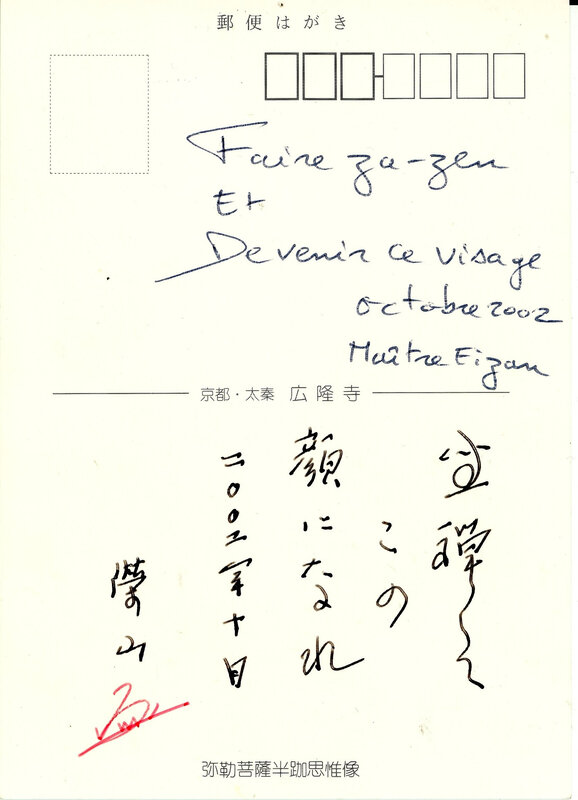 郵便はがき
Faire za-zen
Et
Devenir ce visage
octobre 2002
Maître Eizan
京都・太秦 広隆寺
坐禅して
この
顔になれ
二〇〇二年十月
榮山
弥勒菩薩半跏思惟像